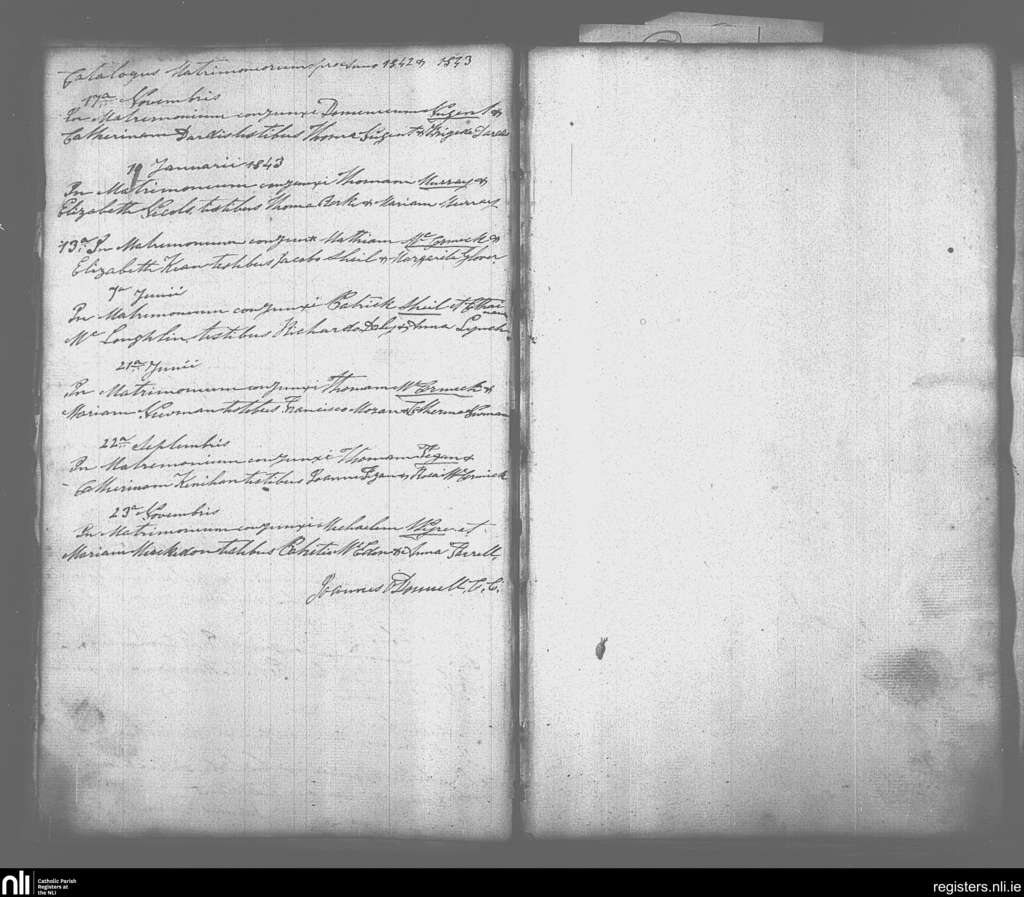 Catalogus Matrimoniorum pro Anno 1842 & 1843
17a Novembris
In Matrimonium conjunxi Nugent &
Catherinam Dardis testibus Thoma Nugent & Brigida
19 Januarii 1843
In Matrimonium conjunxi Thomam Murray &
Elizabeth testibus Thoma & Mariam Murray
13a In Matrimonium conjunxi Mathiam McCormick &
Elizabeth Kean testibus Jacobo Sheil & Margerita Glover
7a Junii
In Matrimonium conjunxi Patrick Sheil et
Mc Loughlin, testibus Richardo Daly & Anna Lynch
21a Junii
In Matrimonium conjunxi Thomam &
Mariam Newman testibus Francisco Moran & Newman
22a Septembris
In Matrimonium conjunxi Thomam Fegan &
Catherinam Kenihan testibus Joanne Fegan & Rosa McCormick
23a Novembris
In Matrimonium conjunxi Michaelum et
Mariam testibus & Anna Farrell,
Joannes O'Donnell, C.C.
nli Catholic Parish
Registers at
the NLI
registers.nli.ie